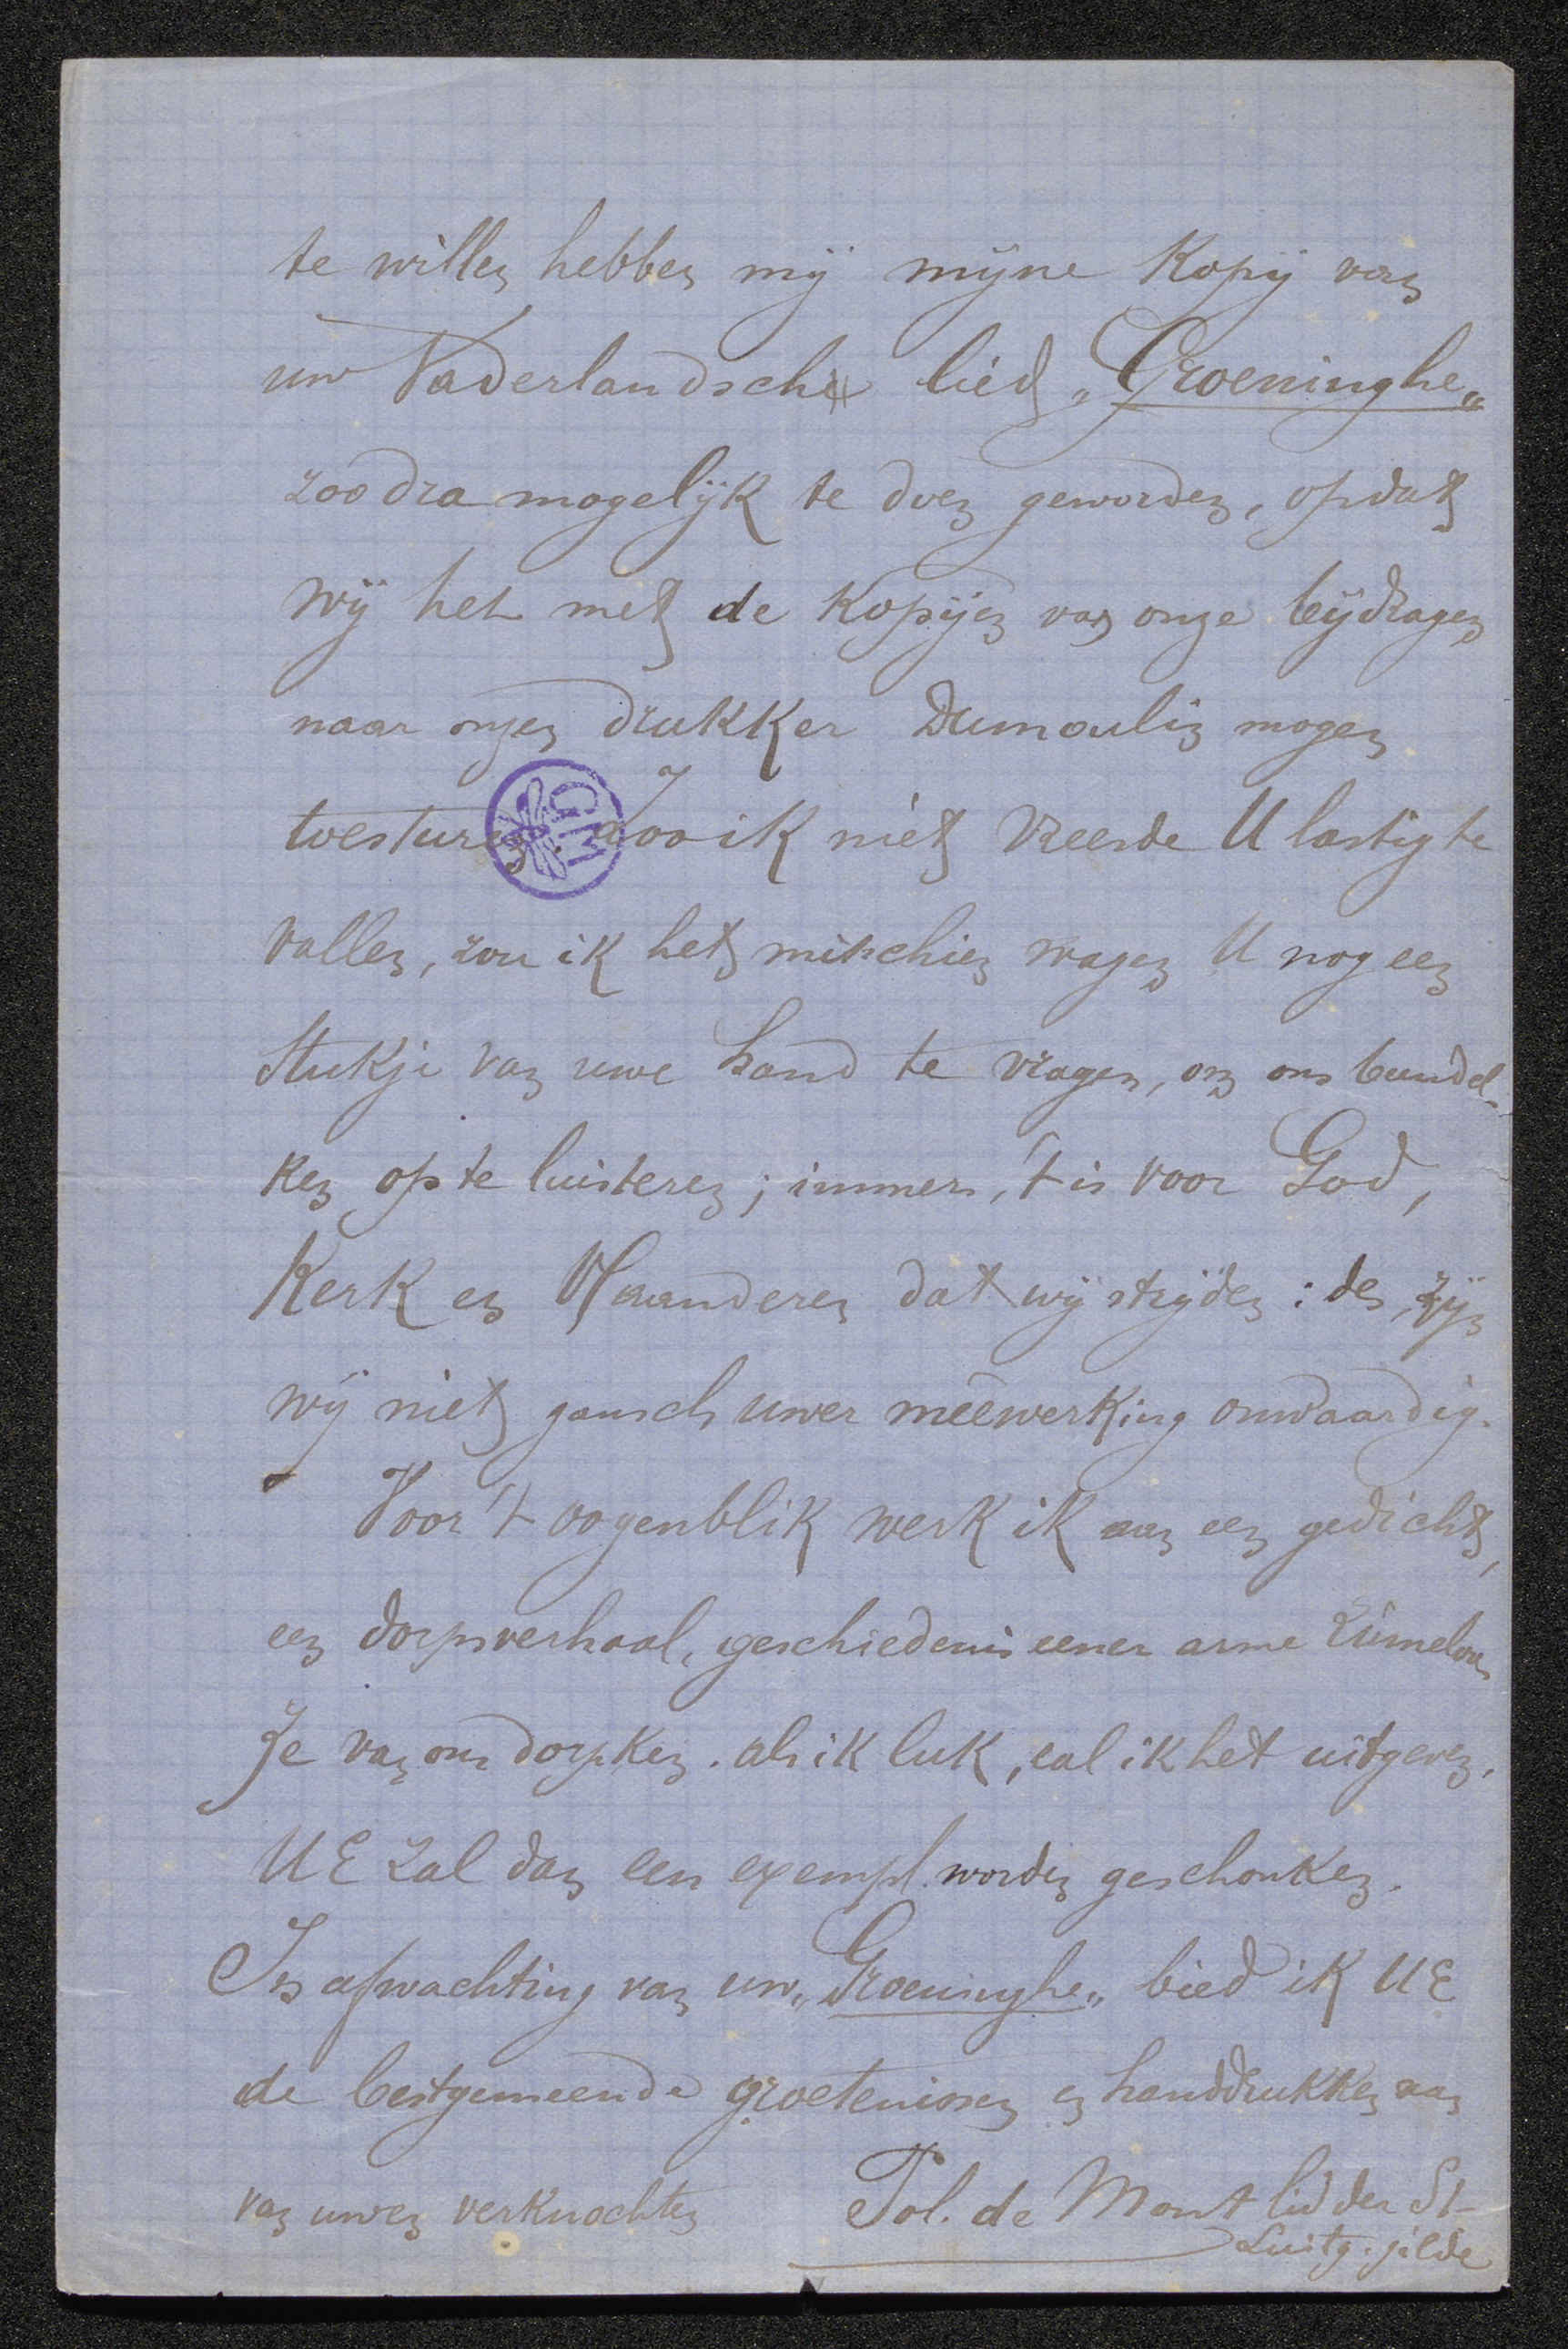 te willen hebben mij mijne Kopij van
uw Vaderlandsch lied „Groeninghe„
zoodra mogelijk te doen geworden, opdat
wij het met de Kopijen van onze bijdragen
naar onzen drukker Dumoulin mogen
toesturen. Zoo ik niet vreesde U lastig te
vallen, zou ik het mischien wagen U nog een
stukje van uwe hand te vragen, om ons bundel-
ken op te luisteren; immers, 't is voor God,
Kerk en Vlaanderen dat wij strijden: des zijn
wij niet gansch uwer meêwerking onwaardig.
Voor 't oogenblik werk ik aan een gedicht,
een dorpsverhaal, geschiedenis eener arme
je van ons dorpken. als ik luk, zal ik het uitgeven.
UE zal dan een exempl. worden geschonken.
In afwachting van uw „Groeninghe„ bied ik UE
de bestgemeende groetenissen en handdrukken aan
van uwen verknochten Pol. de Mont lid der St-
Luitg. gilde
GM